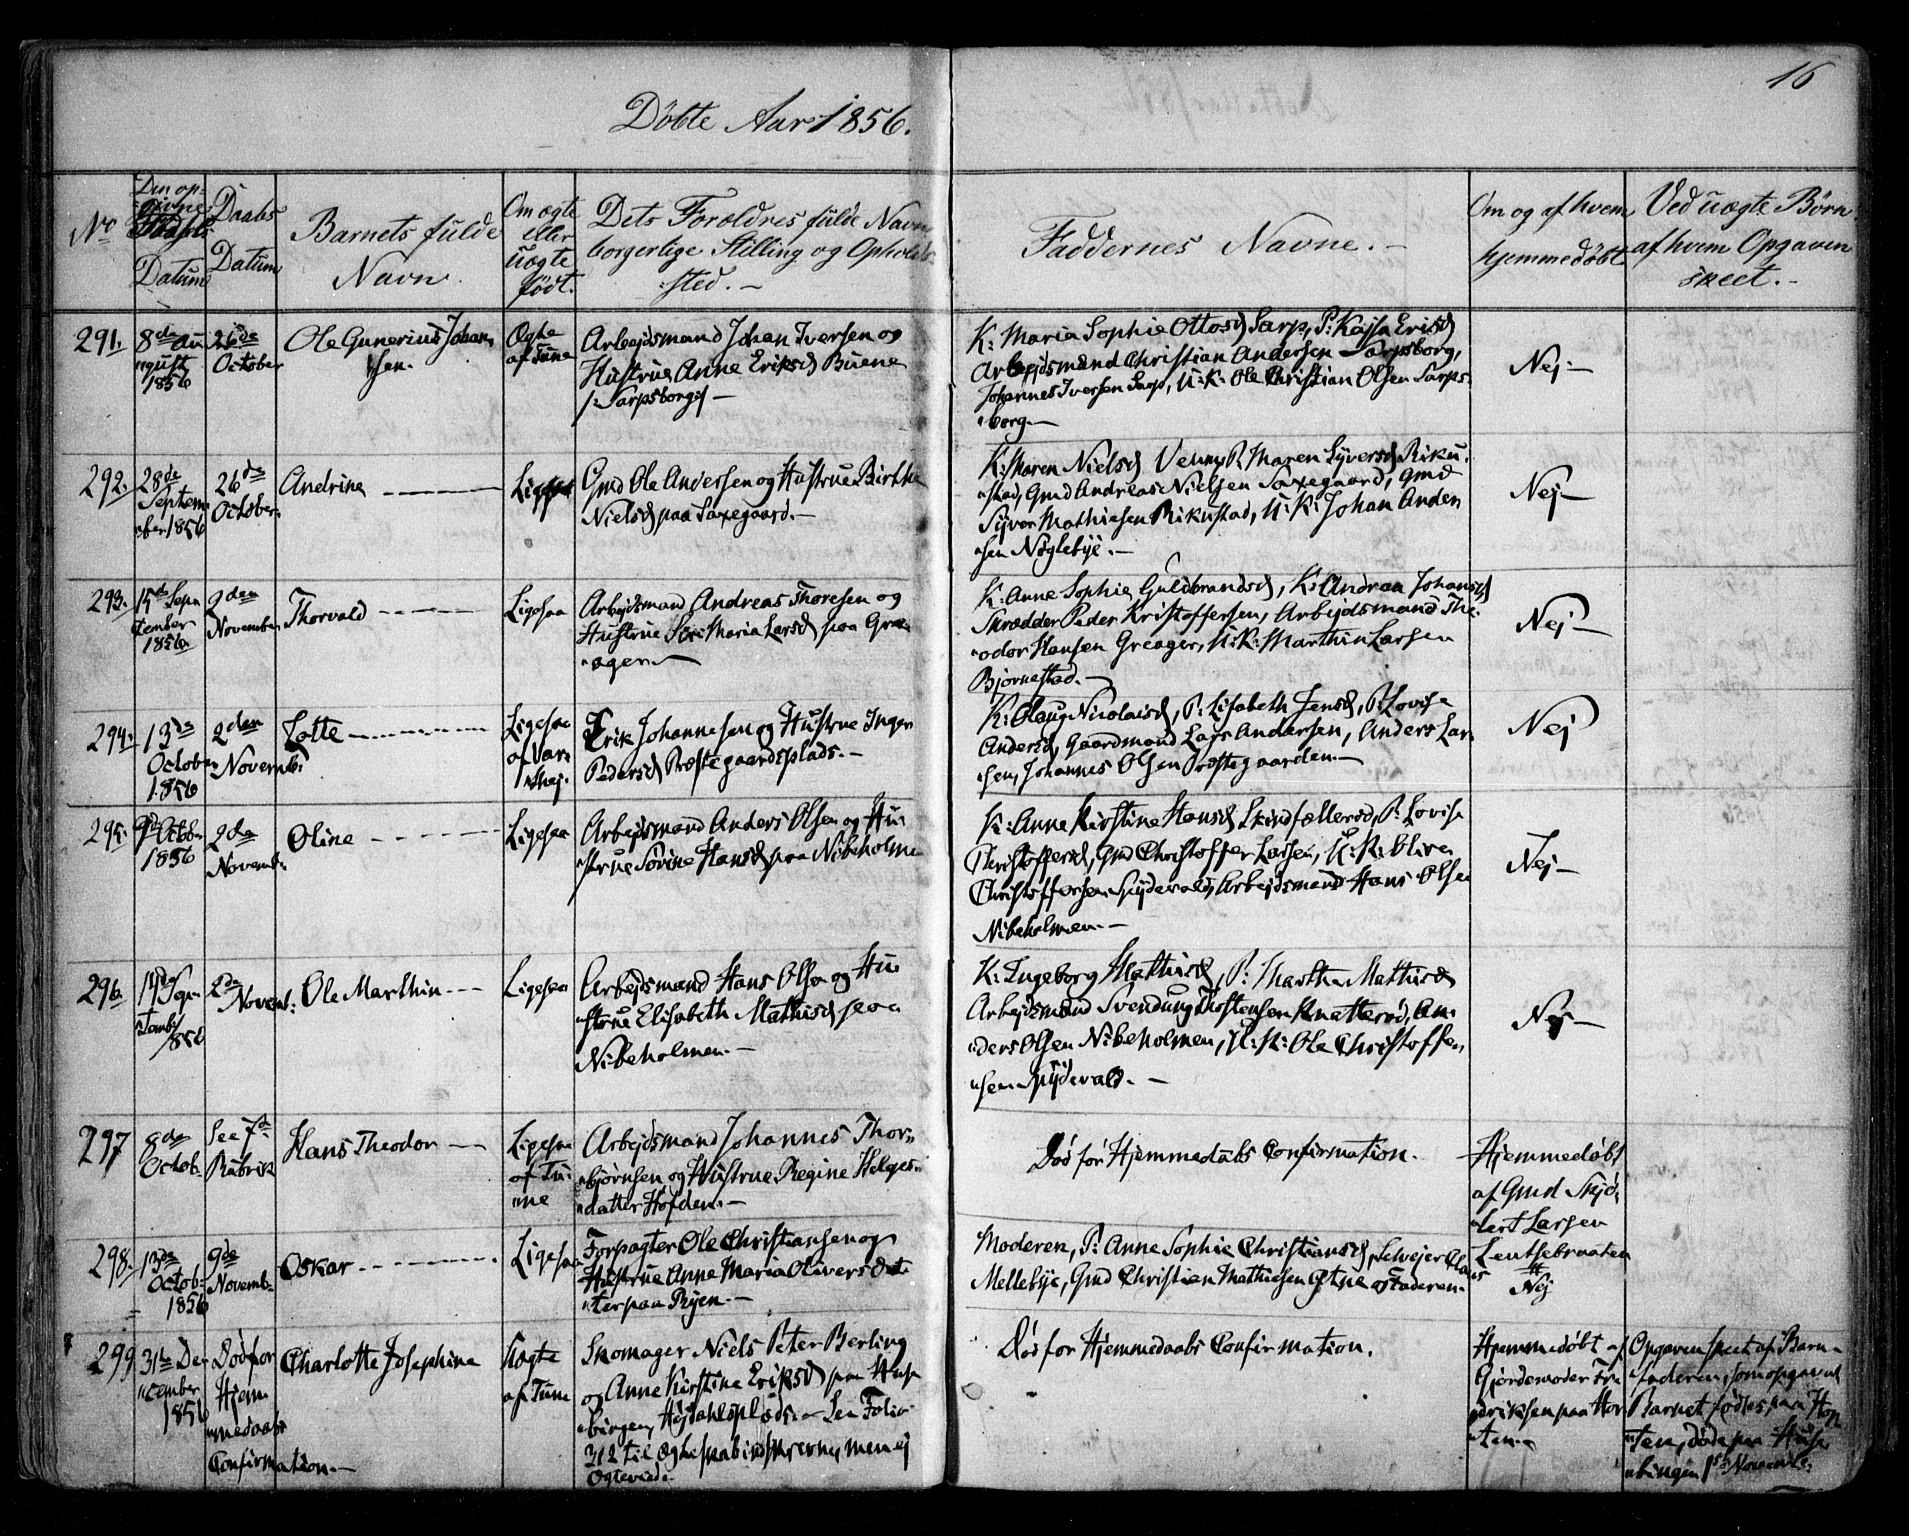 16
Döbte Aar 1856.
No
Den op-
givne
Datum
Daabs
Datum
Barnets fulde
Navn
Om ægte
eller
uægte
födt.
Dets Forældres fulde Navn
borgerlige Stilling og Opholds-
sted. -
Faddernes Navne. -
Om og af hvem
hjemmedöbt
Ved uægte Børn
af hvem Opgaven
skeet. -
291.
8de Au
"gust
1856
26de
October
Ole Gunerius Johan
"sen
Ægte
af Tune
Arbejdsmand Johan Iversen og
Hustrue Anne Eriksd Buene
/: Sarpsborg :/ -
K: Maria Sophie Ottosd Sarp, P: Kajsa Eriksd
Arbejdsmand Christian Andersen Sarpsborg,
Johannes Iversen Sarp, U: K: Ole Christian Olsen Sarps
"borg. -
Nej -
292.
28de
Septem
"ber 1856
26de
October.
Andrine
Ligesaa
Gmd Ole Andersen og Hustrue Birthe
Nielsd paa Saxegaard. -
K: Maren Nielsd P. Maren Syversd Riku.
"stad, Gmd Andreas Nielsen Saxegaard, Gmd
Syver Mathiesen Rikustad, U. K: Johan Ander
"sen Nöglebye. -
Nej -
293.
Sep
"tember
1856
2den
November
Thorvald
Ligesaa
Arbejdsmand Andreas Thoresen og
Hustrue Maria Larsd paa Gre
"ager. -
K: Anne Sophie Guldbrandsd, K: Andrea Johansd,
Skrædder Peder Kristoffersen, Arbejdsmand The
"odor Hansen Greager, U. K: Marthin Larsen
Bjørnestad. -
Nej -
294.
13de
October
1856
2den
Novemb:
Lotte
Ligesaa
af Var
"tej.
Erik Johannesen og Hustrue Inger
Pedersd Præstegaardsplads. -
K: Olaug Nicolaisd, P: Lisabeth Jensd, P. Lovise
Andersd, Gaardmand Lars Andersen, Anders Lar
"sen, Johannes Olsen Præstegaarden. -
Nej
295.
Octob.
1856
2de
Novemb.
Oline
Ligesaa
Arbejdsmand Anders Olsen og Hu
"strue Sörine Hansd paa Nibeholme
K: Anne Kirstine Hansd Skindfællerød, P. Lovise
Christoffersd, Gmd Christoffer Larsen, U. K: Oliver
Christoffersen Spydevald, Arbejdsmand Hans Olsen
Nibeholmen. -
Nej -
296.
14de Sep
"temb
1856
2de
Novem:
Ole Marthin
Ligesaa
Arbejdsmand Hans Olsen og Hu
"strue Elisabeth Mathisd paa
Nibeholmen. -
K: Ingeborg Mathisd, P: Martha Mathisd
Arbejdsmand Svendung Thostensen Knatterød, An
"ders Olsen Nibeholmen, U. K: Ole Christoffer
"sen Spydevald. -
Nej -
297
8de
Octob.
See 7de
Rubrik
Hans Theodor
Ligesaa
af Tu
"ne
Arbejdsmand Johannes Thor
"bjørnsen og Hustrue Regine Helges
"datter Hofden. -
Död för Hjemmedaabs Confirmation.
Hjemmedöbt
af Gmd Skjö
"lert Larsen
Lentsebraaten
298.
13de
Octob.
1856
9de
Novemb.
Oskar
Ligesaa
Forpagter Ole Christiansen og
Hustrue Anne Maria Olivers dat
"ter paa Ryen. -
Moderen, P: Anne Sophie Christiansd, Selvejer Claus
Mellebye, Gmd Christian Mathiesen Gtne Faderen.
Nej
299
31te De
"cember
1856
Död for
Hjem
"medaabs
Confirmation. -
Charlotte Josephine
Uægte
af Tune
Skomager Niels Peter Berling
og Anne Kirstine Eriksd paa Huse
"bingen Hejdahlsplads. - See Folio
312 til men ej
Ægteviede.
Död for Hjemmedaabs Confirmation.
Hjemmedöbt af
Gjordemoder Fre
"driksen paa Hor
"ten. -
Opgaven skeet af Barne
"faderen, som opgav at
Barnet födtes paa Hor
"ten, döde paa Huse
"bingen 1ste Novemb: